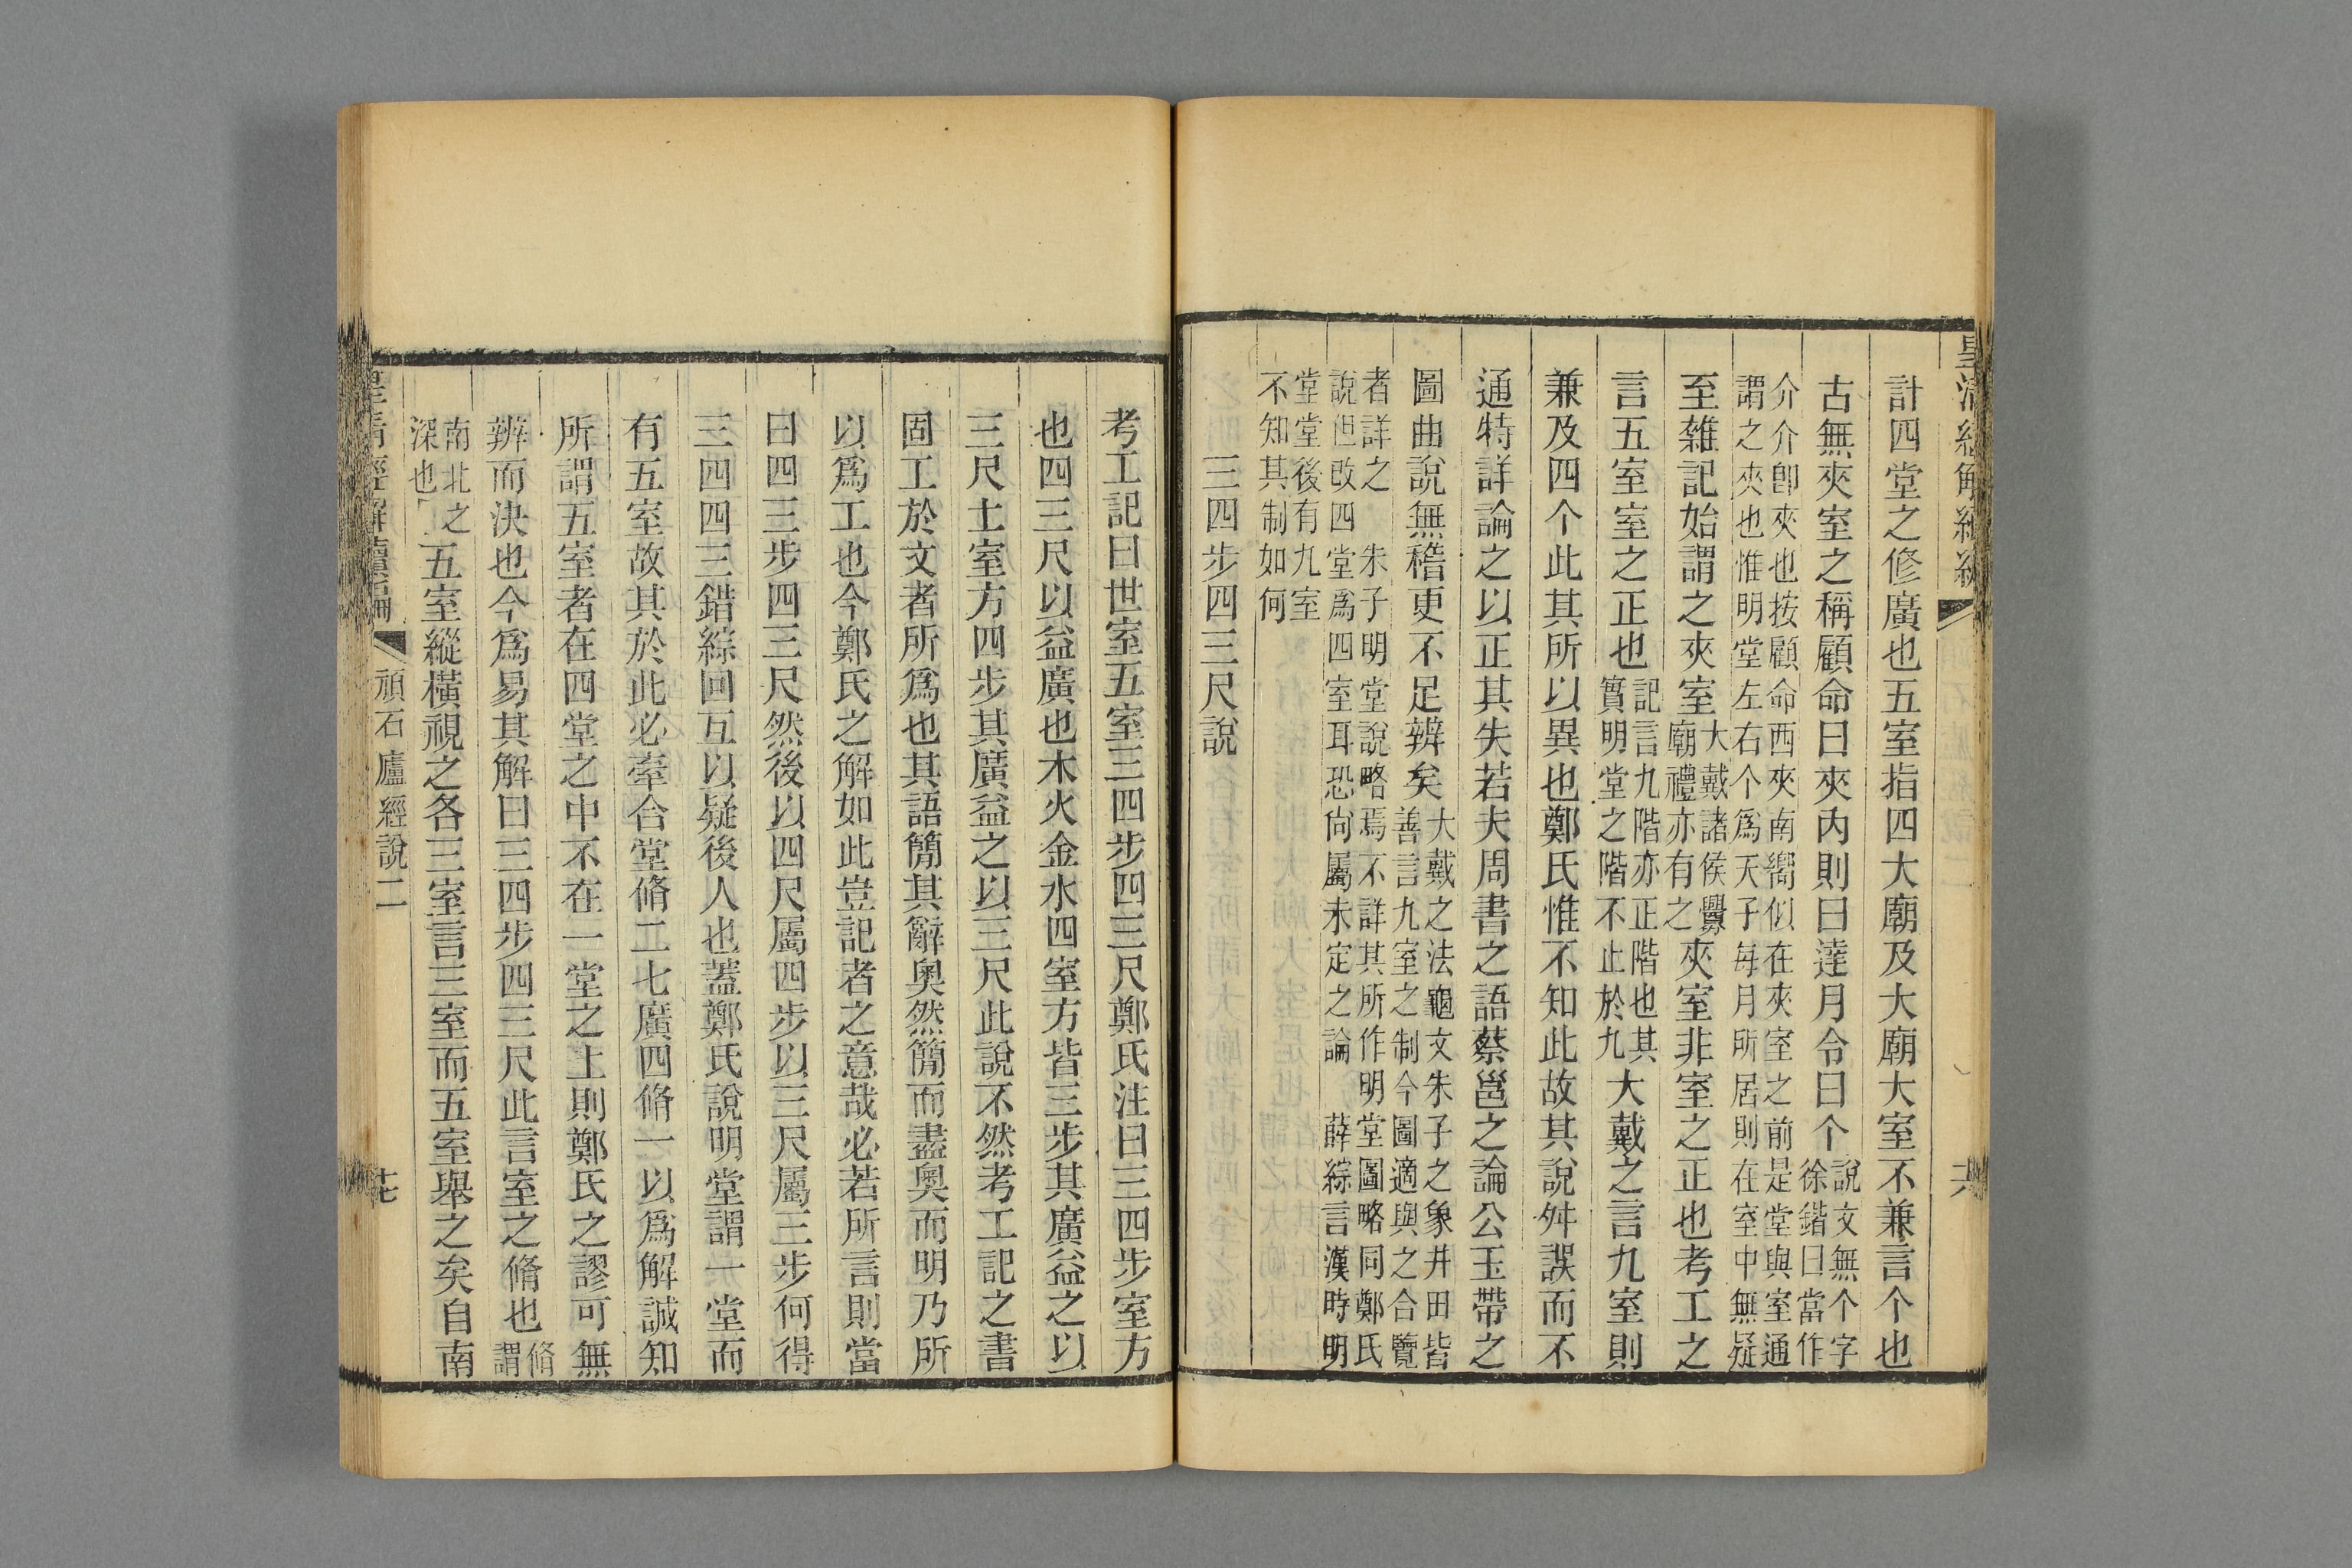 計四堂之修廣也五室指四大廟及大廟大室不兼言个也
古無夾室之稱顧命曰夾內則曰達月令曰个說文無个字徐鍇曰當作
介介卽夾也按顧命西夾南嚮似在夾室之前是堂與室通謂之夾也惟明堂左右个爲天子每月所居則在室中無疑
至雜記始謂之夾室大戴諸侯釁廟禮亦有之夾室非室之正也考工之
言五室室之正也記言九階亦正階也其實明堂之階不止於九大戴之言九室則
兼及四个此其所以異也鄭氏惟不知此故其說舛誤而不
通特詳論之以正其失若夫周書之語蔡邕之論公玉帶之
圖曲說無稽更不足辨矣大戴之法龜文朱子之象井田皆善言九室之制今圖適與之合覽
者詳之　朱子明堂說略焉不詳其所作明堂圖略同鄭氏說但改四堂爲四室耳恐尙屬未定之論　薛綜言漢時明
堂堂後有九室不知其制如何
三四步四三尺說
考工記曰世室五室三四步四三尺鄭氏注曰三四步室方
也四三尺以益廣也木火金水四室方皆三步其廣益之以
三尺土室方四步其廣益之以三尺此說不然考工記之書
固工於文者所爲也其語簡其辭奧然簡而盡奧而明乃所
以爲工也今鄭氏之解如此豈記者之意哉必若所言則當
曰四三步四三尺然後以四尺屬四步以三尺屬三步何得
三四四三錯綜回互以疑後人也蓋鄭氏說明堂謂一堂而
有五室故其於此必牽合堂脩二七廣四脩一以爲解誠知
所謂五室者在四堂之中不在一堂之上則鄭氏之謬可無
辨而決也今爲易其解曰三四步四三尺此言室之脩也脩謂
南北之深也五室縱橫視之各三室言三室而五室舉之矣自南
頑石廬經說二